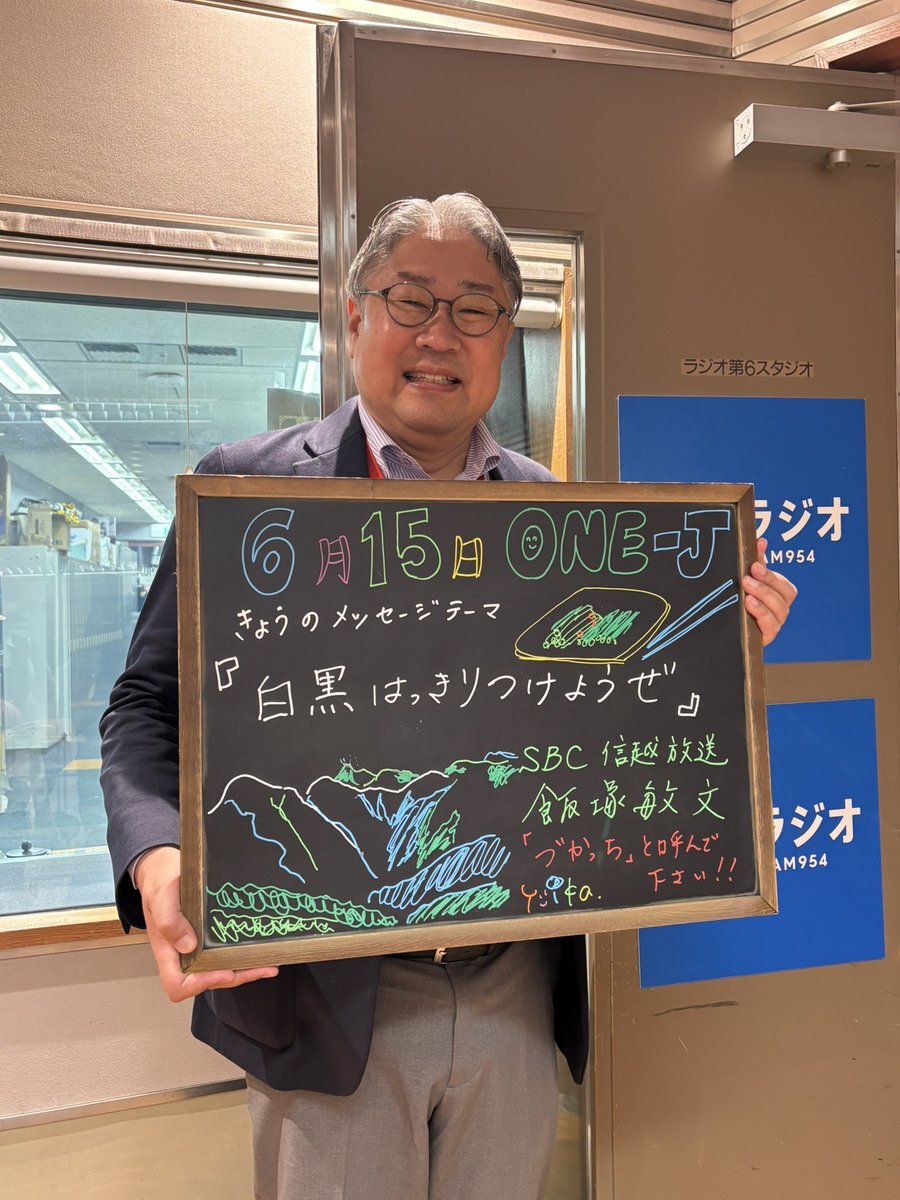 ラジオ第6スタジオ
ラジオ
AM954
6月15日 ONE-J
きょうのメッセージテーマ
『白黒はっきりつけようぜ』
SBC 信越放送
飯塚敏文
「づかっち」と呼んで
下さい!!
yuika.
ラジオ
AM954